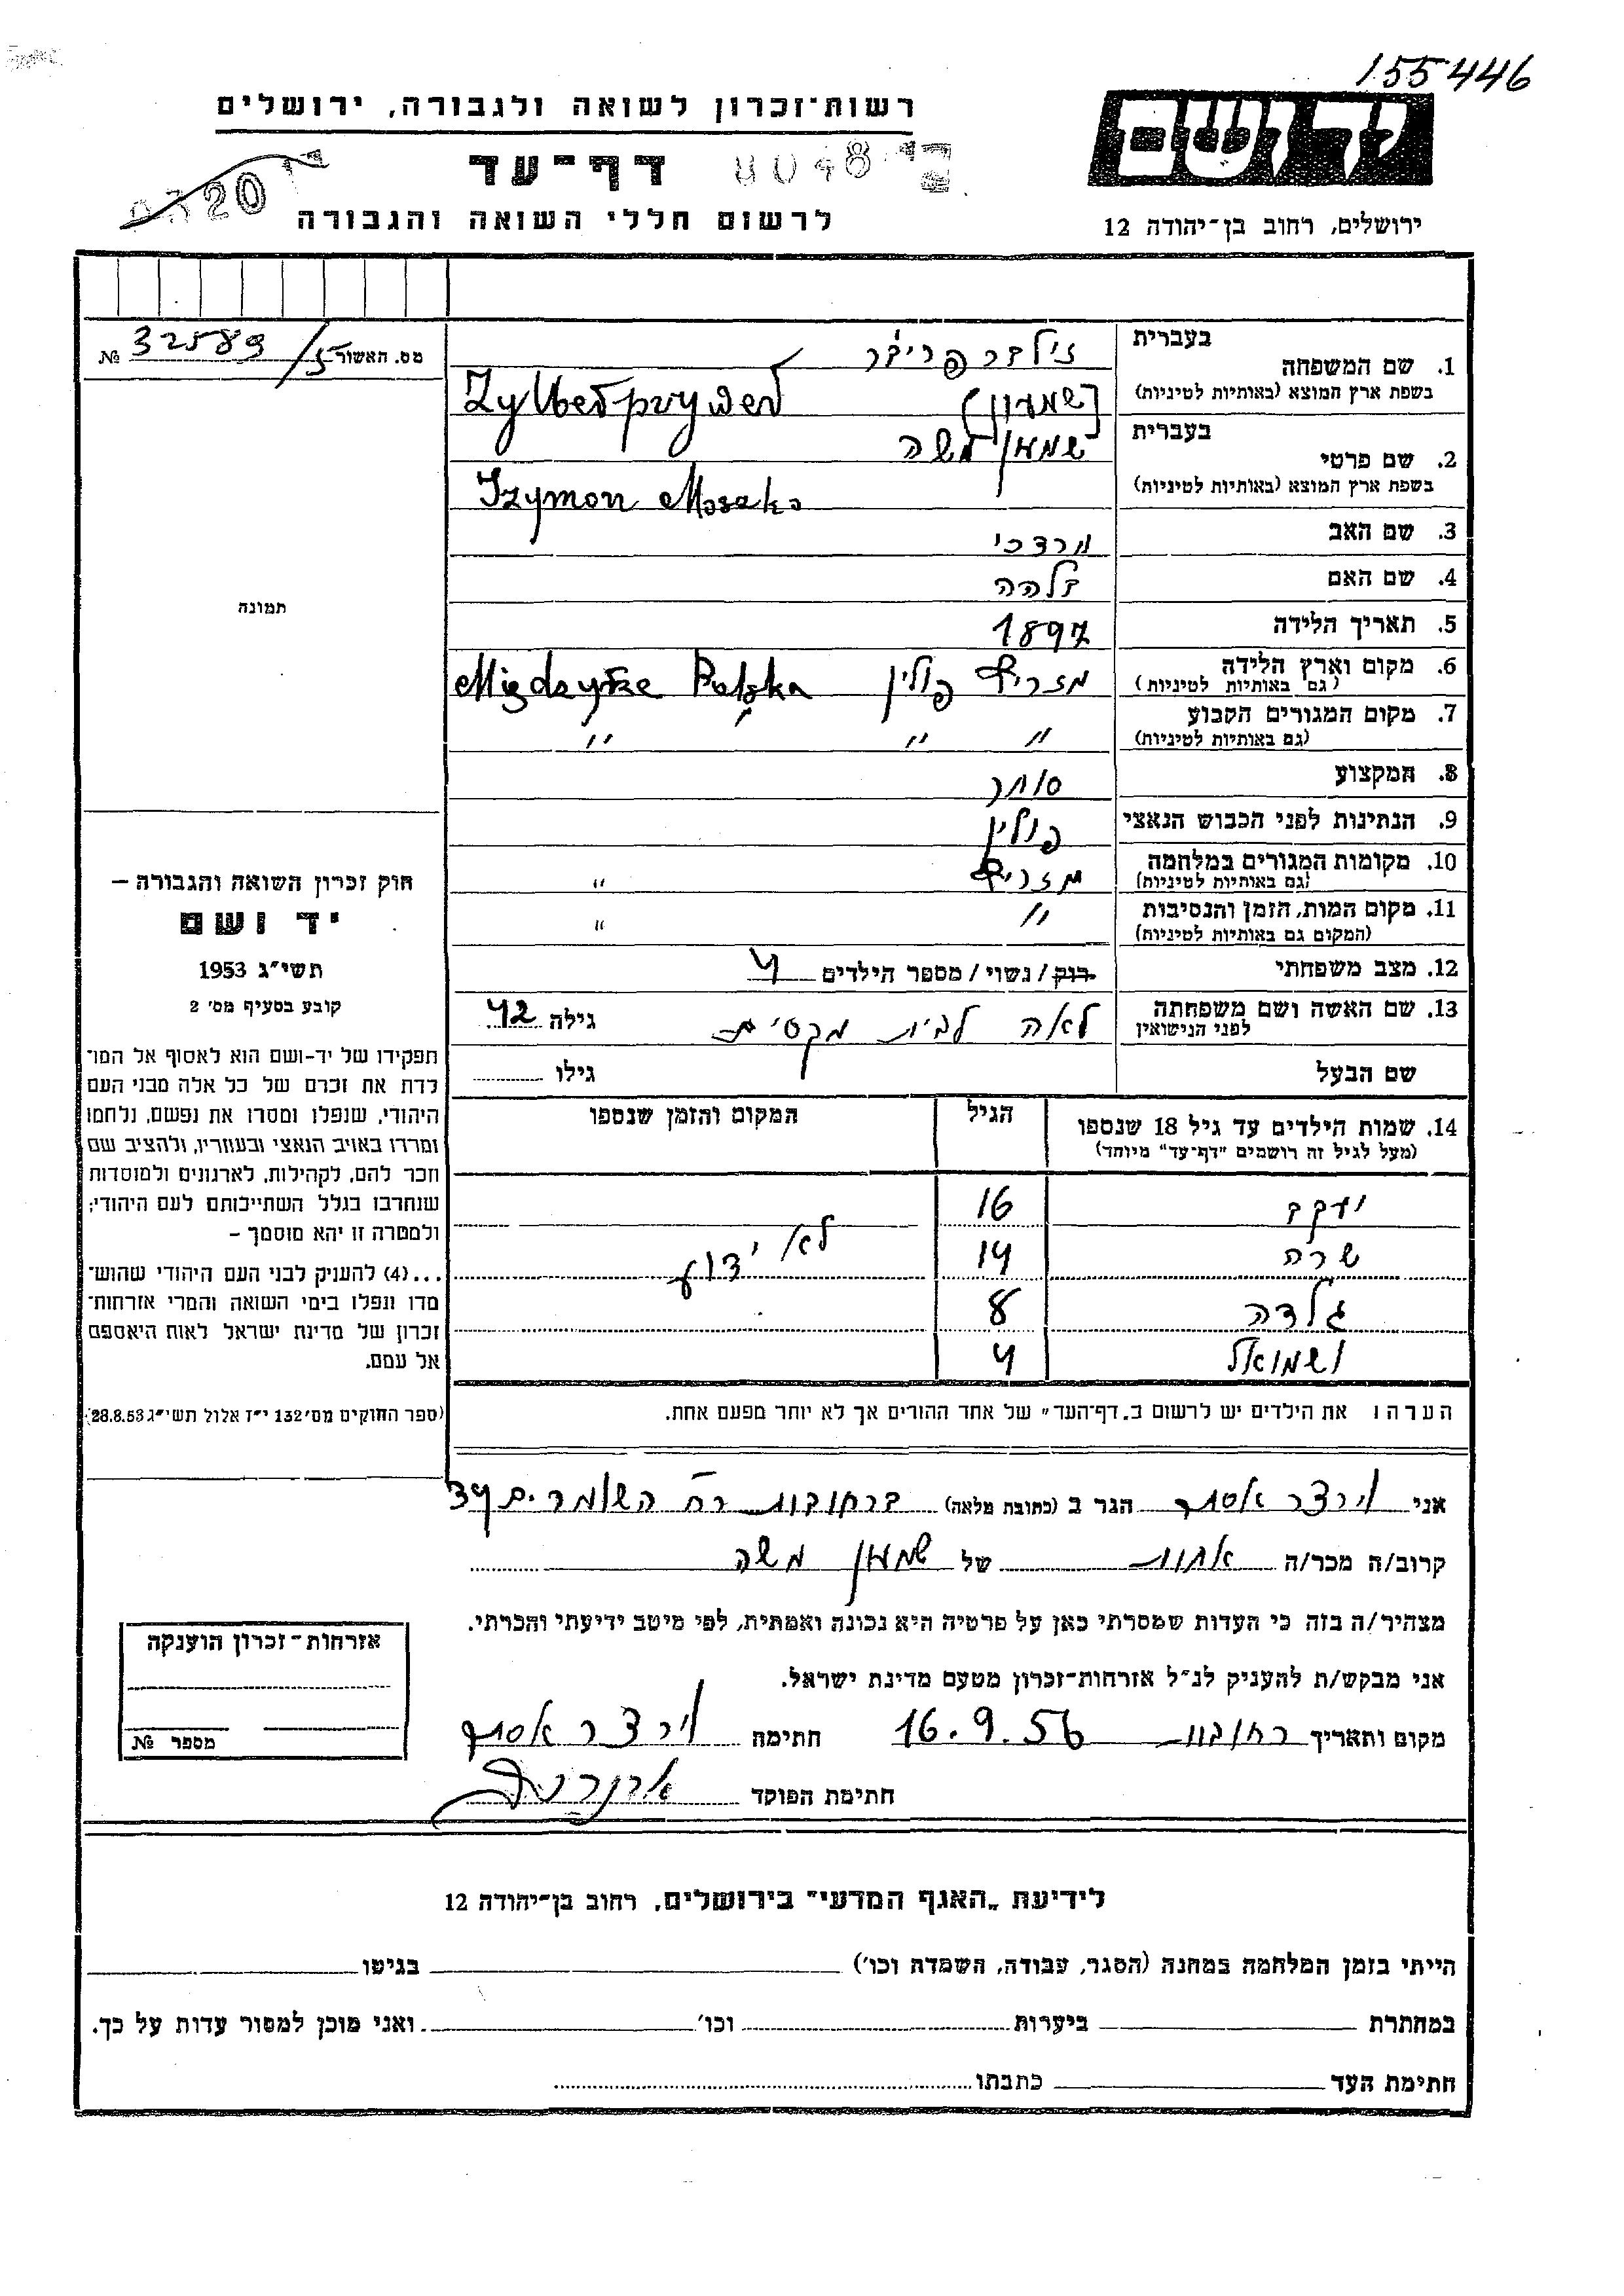 155446
רשות־זכרון לשואה ולגבורה, ירושלים
דף־עד
לרשום חללי השואה והגבורה
יד ושם
ירושלים, רחוב בן־יהודה 12
מס. האשור 32589/5 №
1. שם המשפחה בעברית זילברפריבר
בשפת ארץ המוצא (באותיות לטיניות) Zylberprywer
[שמעון]
2. שם פרטי בעברית שמעון משה
בשפת ארץ המוצא (באותיות לטיניות) Szymon Moszko
3. שם האב מרדכי
4. שם האם זלהה
5. תאריך הלידה 1897
6. מקום וארץ הלידה מזריץ פולין Międzyrze Polska
(גם באותיות לטיניות)
7. מקום המגורים הקבוע " " "
(גם באותיות לטיניות)
8. המקצוע סוחר
9. הנתינות לפני הכבוש הנאצי פולין
10. מקומות המגורים במלחמה מזריץ "
(גם באותיות לטיניות)
11. מקום המות, הזמן והנסיבות " "
(המקום גם באותיות לטיניות)
12. מצב משפחתי רוק / נשוי / מספר הילדים 4
13. שם האשה ושם משפחתה לאה לבית גילה 42
לפני הנישואין
שם הבעל גילו
14. שמות הילדים עד גיל 18 שנספו הגיל המקום והזמן שנספו
(מעל לגיל זה רושמים "דף־עד" מיוחד)
יעקב 16
שרה 14 לא ידוע
גלדה 8
ושמואל 4
תמונה
חוק זכרון השואה והגבורה –
יד ושם
תשי״ג 1953
קובע בסעיף מס׳ 2
תפקידו של יד-ושם הוא לאסוף אל המו־
לדת את זכרם של כל אלה מבני העם
היהודי, שנפלו ומסרו את נפשם, נלחמו
ומרדו באויב הנאצי ובעוזריו, ולהציב שם
וזכר להם, לקהילות, לארגונים ולמוסדות
שנחרבו בגלל השתייכותם לעם היהודי;
ולמטרה זו יהא מוסמך –
...(4) להעניק לבני העם היהודי שהוש־
מדו ונפלו בימי השואה והמרי אזרחות־
זכרון של מדינת ישראל לאות היאספם
אל עמם.
(ספר החוקים מס׳ 132 י״ז אלול תשי״ג 28.8.53)
הערה: את הילדים יש לרשום ב„דף־העד" של אחד ההורים אך לא יותר מפעם אחת.
אני וירצר אסתר הגר ב (כתובת מלאה) ברחובות רח השומרים 34
קרוב/ה מכר/ה אחות של שמעון משה
מצהיר/ה בזה כי העדות שמסרתי כאן על פרטיה היא נכונה ואמתית, לפי מיטב ידיעתי והכרתי.
אני מבקש/ת להעניק לנ״ל אזרחות־זכרון מטעם מדינת ישראל.
מקום ותאריך רחובות 16.9.56 חתימה וירצר אסתר
חתימת הפוקד
אזרחות־זכרון הוענקה
מספר №
לידיעת „האגף המדעי" בירושלים, רחוב בן־יהודה 12
הייתי בזמן המלחמה במחנה (הסגר, עבודה, השמדה וכו׳) בגיטו
במחתרת ביערות וכו׳ ואני מוכן למסור עדות על כך.
חתימת העד כתבתו